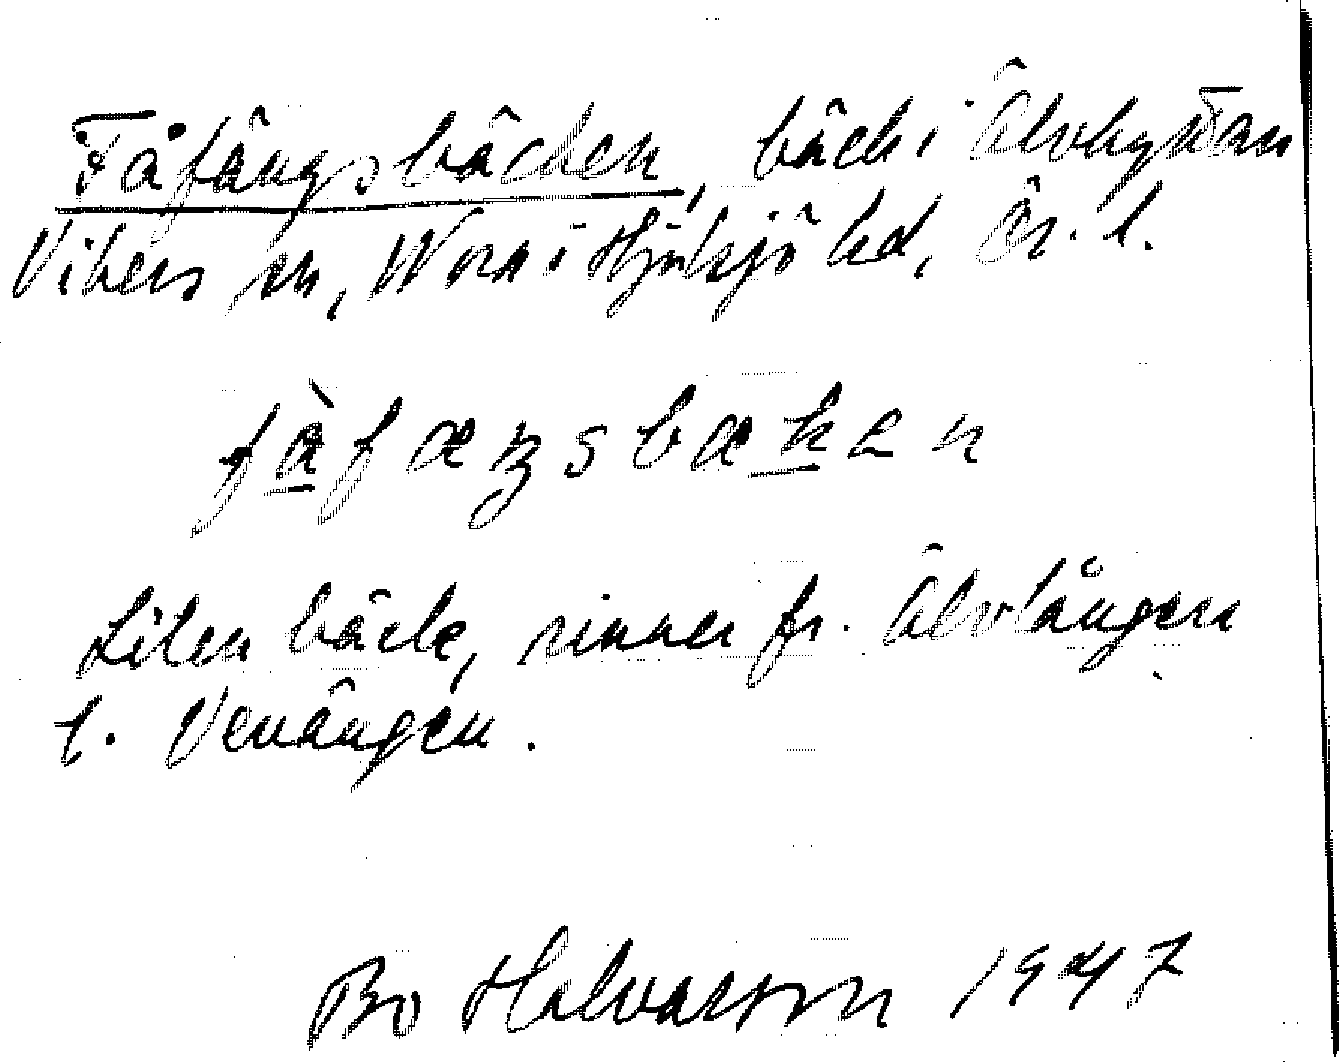 Fåfängsbäcken, bäck i Älvhyttan
Vikers sn, Nora i Hjulsjö hd, Ör. l.
fàfæŋsbækən
Liten bäck, rinner fr. Älvlången
t. Venängen.
Bo Halvarson 1947